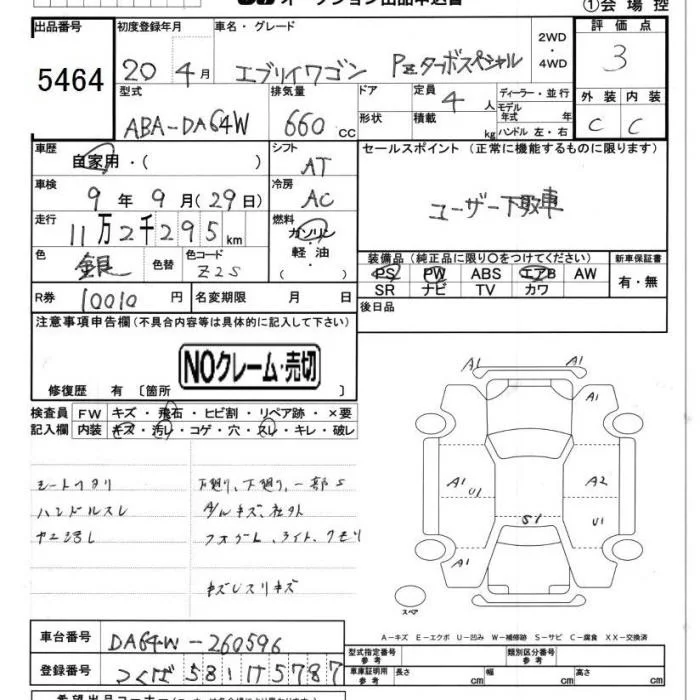 オークション出品申込書 ①会場控
出品番号 5464
初度登録年月 20年4月
車名・グレード エブリイワゴン PZターボスペシャル
2WD・4WD
評価点 3
外装 C 内装 C
型式 ABA-DA64W
排気量 660cc
ドア 形状
定員 4人
積載 kg
ディーラー・並行
モデル年式 年
ハンドル 左・右
車歴 自家用・( )
シフト AT
セールスポイント (正常に機能するものに限ります)
ユーザー下取車
車検 9年9月(29日)
冷房 AC
走行 11万2千295km
燃料 ガソリン・軽油・( )
色 銀 色替
色コード Z2S
装備品(純正品に限り○をつけてください)
PS PW ABS エアB AW
SR ナビ TV カワ
新車保証書 有・無
R券 10010円
名変期限 月 日
後日品
注意事項申告欄(不具合内容等は具体的に記入して下さい)
NOクレーム・売切
修復歴 有〔箇所 〕
検査員記入欄
FW キズ・飛石・ヒビ割・リペア跡・×要
内装 キズ・汚レ・コゲ・穴・スレ・キレ・破レ
シートヘタリ
ハンドルスレ
下廻り、一部S
キズ
A1 A1
A1
A1 U1 A2
S1 U1
A1
スペア
A－キズ E－エクボ U－凹み W－補修跡 S－サビ C－腐食 XX－交換済
車台番号 DA64W-260596
登録番号 つくば 581 け 5787
型式指定番号 参考
類別区分番号 参考
車庫証明用 参考 長さ cm 幅 cm 高さ cm